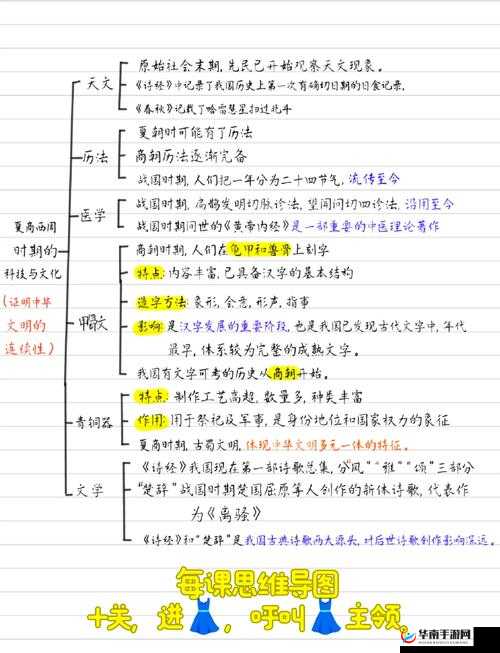 原始社会末期，先民已开始观察天文现象。
天文
《诗经》中记录了我国历史上第一次有确切日期的日食记录，
《春秋》记载了哈雷彗星扫过北斗
夏朝时可能有了历法
历法
商朝历法逐渐完备
战国时期，人们把一年分为二十四节气，流传至今
医学
战国时期，扁鹊发明切脉诊法，望闻问切四诊法，沿用至今
战国时期问世的《黄帝内经》是一部重要的中医理论著作
夏商西周
时期的
科技与文化
（证明中华
文明的
连续性）
商朝时期，人们在龟甲和兽骨上刻字
特点：内容丰富，已具备汉字的基本结构
造字方法：象形，会意，形声，指事
甲骨文
影响：是汉字发展的重要阶段，也是我国已发现古代文字中，年代
最早，体系较为完整的成熟文字。
我国有文字可考的历史从商朝开始。
特点：制作工艺高超，数量多，种类丰富
青铜器
作用：用于祭祀及军事，是身份地位和国家权力的象征
夏商时期，古蜀文明，体现中华文明多元一体的特征。
《诗经》我国现在第一部诗歌总集，分"风""雅""颂"三部分
文学
"楚辞"战国时期楚国屈原等人创作的新体诗歌，代表作
为《离骚》
《诗经》和"楚辞"是我国古典诗歌两大源头，对后世诗歌创作影响深远。
每课思维导图
+关，进👗，呼叫👗主领。
华南手游网